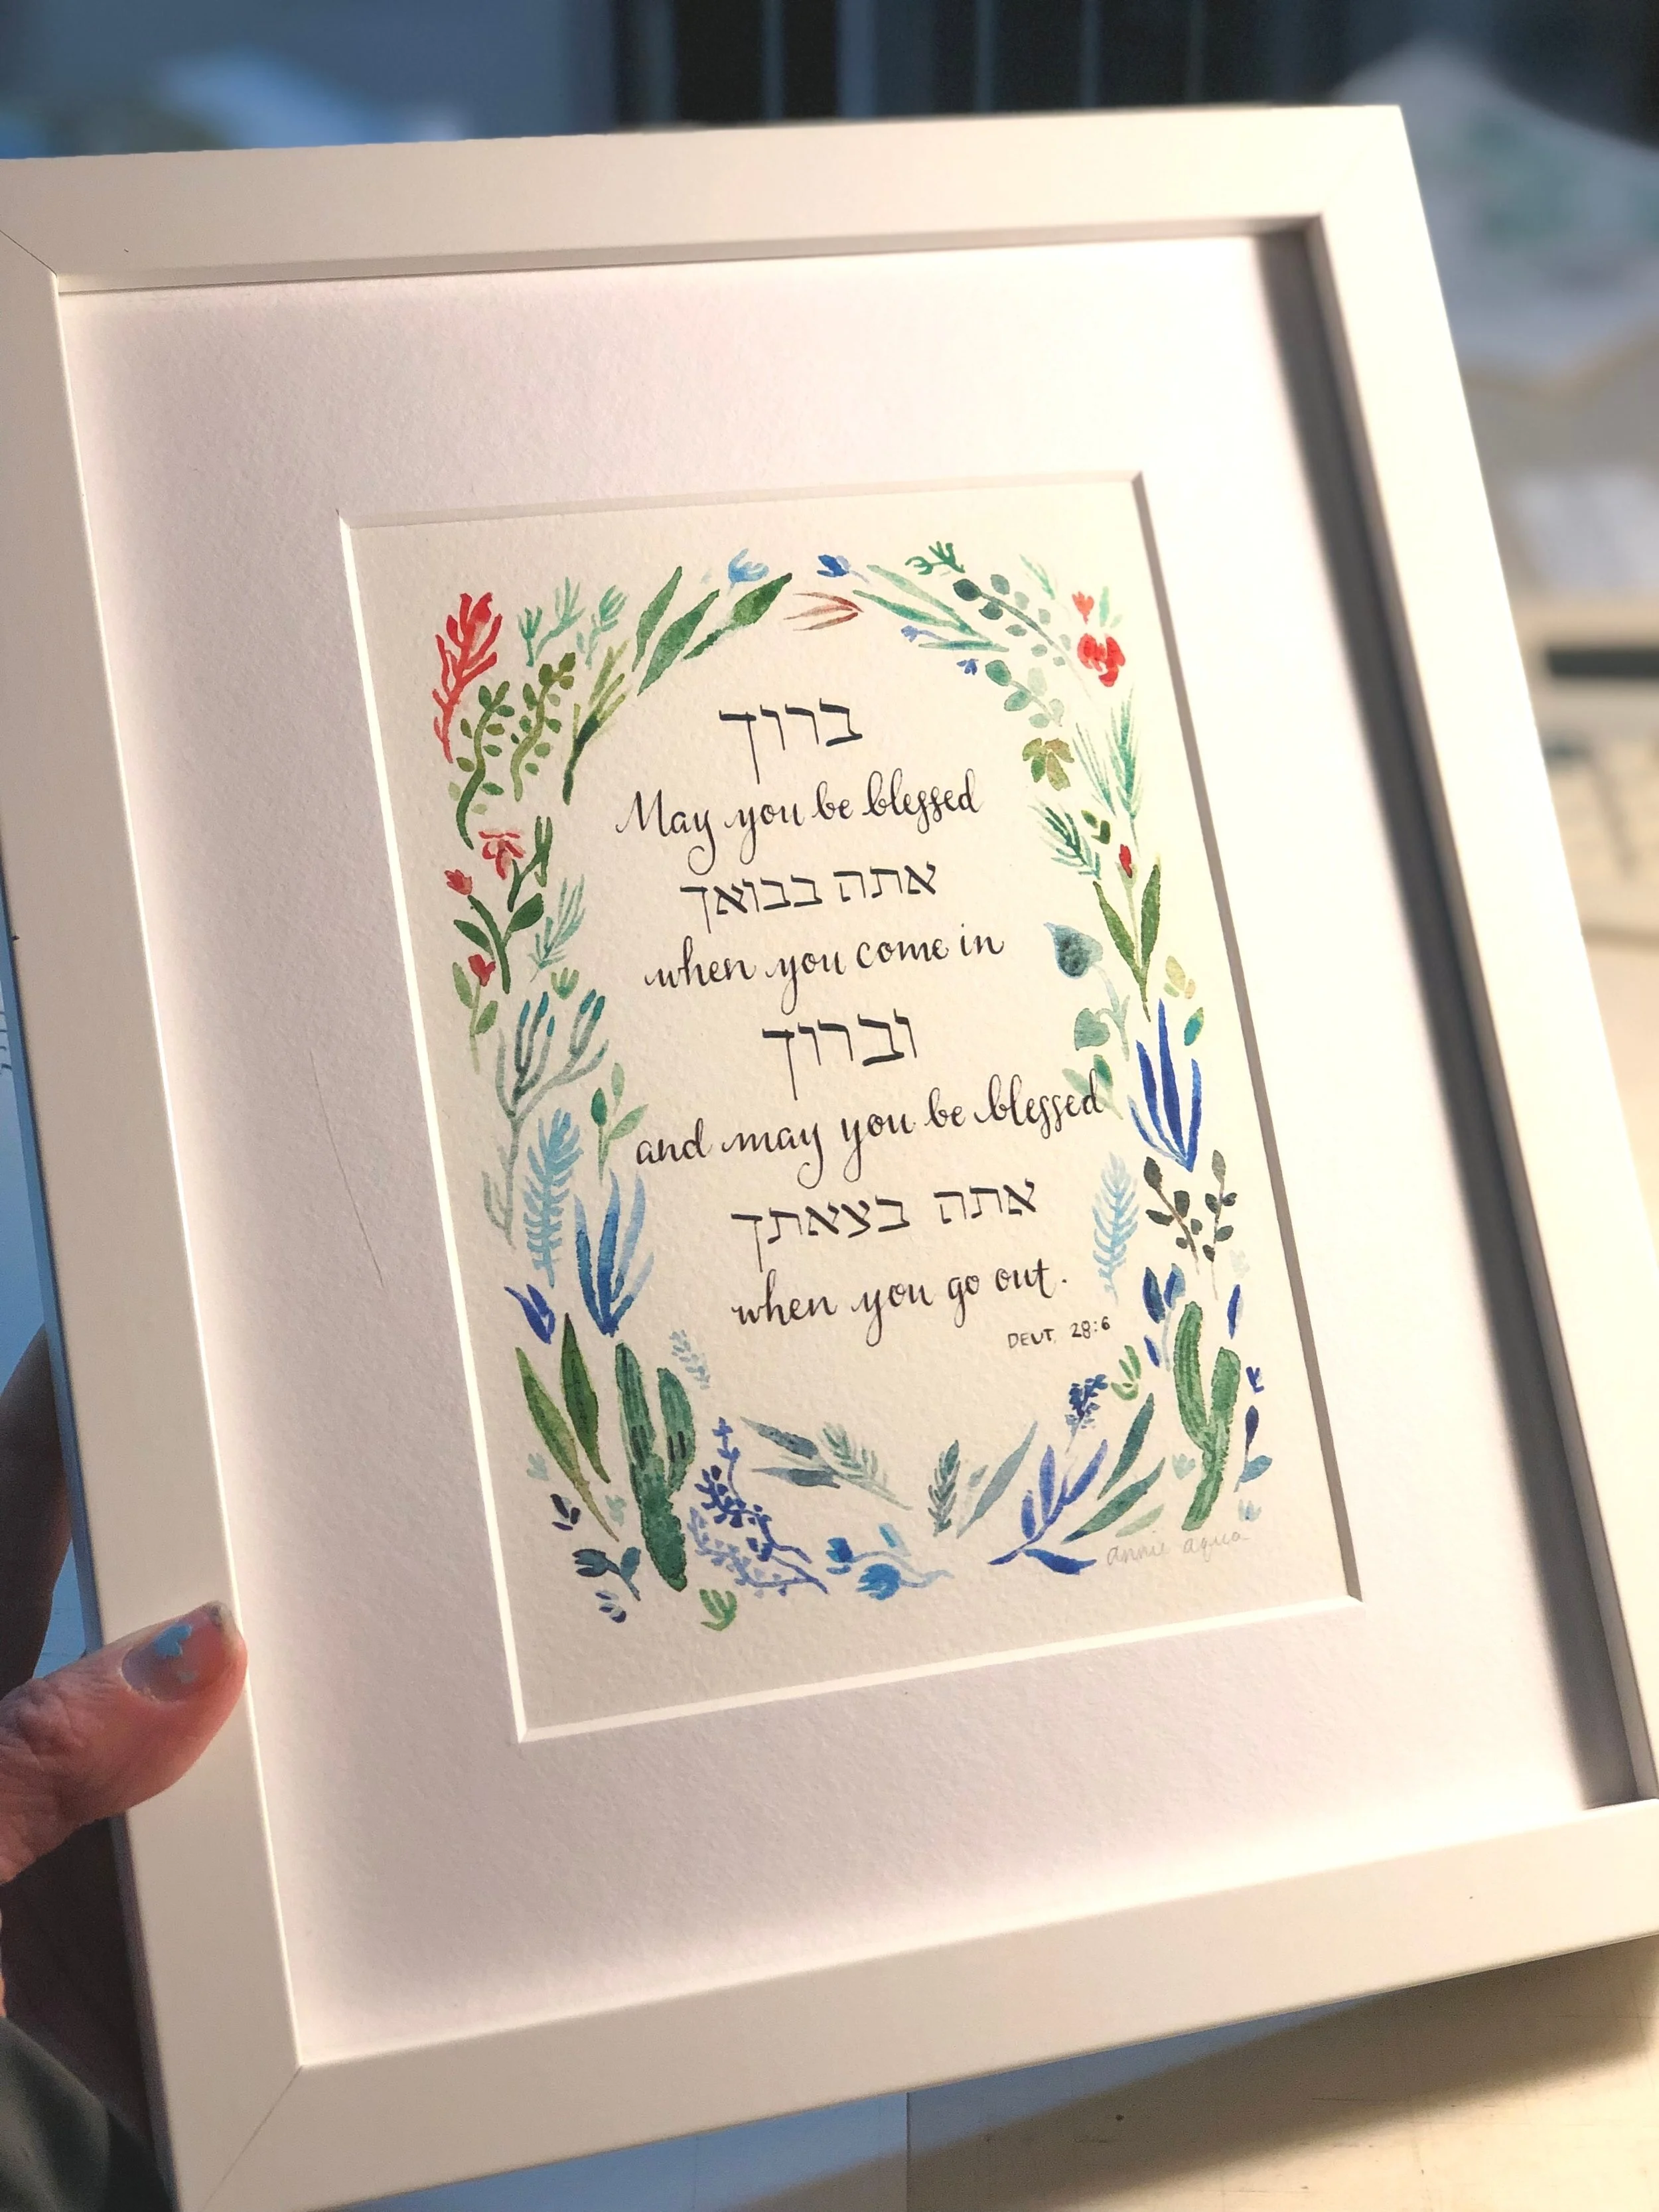 ברוך
May you be blessed
אתה בבואך
when you come in
וברוך
and may you be blessed
אתה בצאתך
when you go out.
DEUT. 28:6
annie aqua